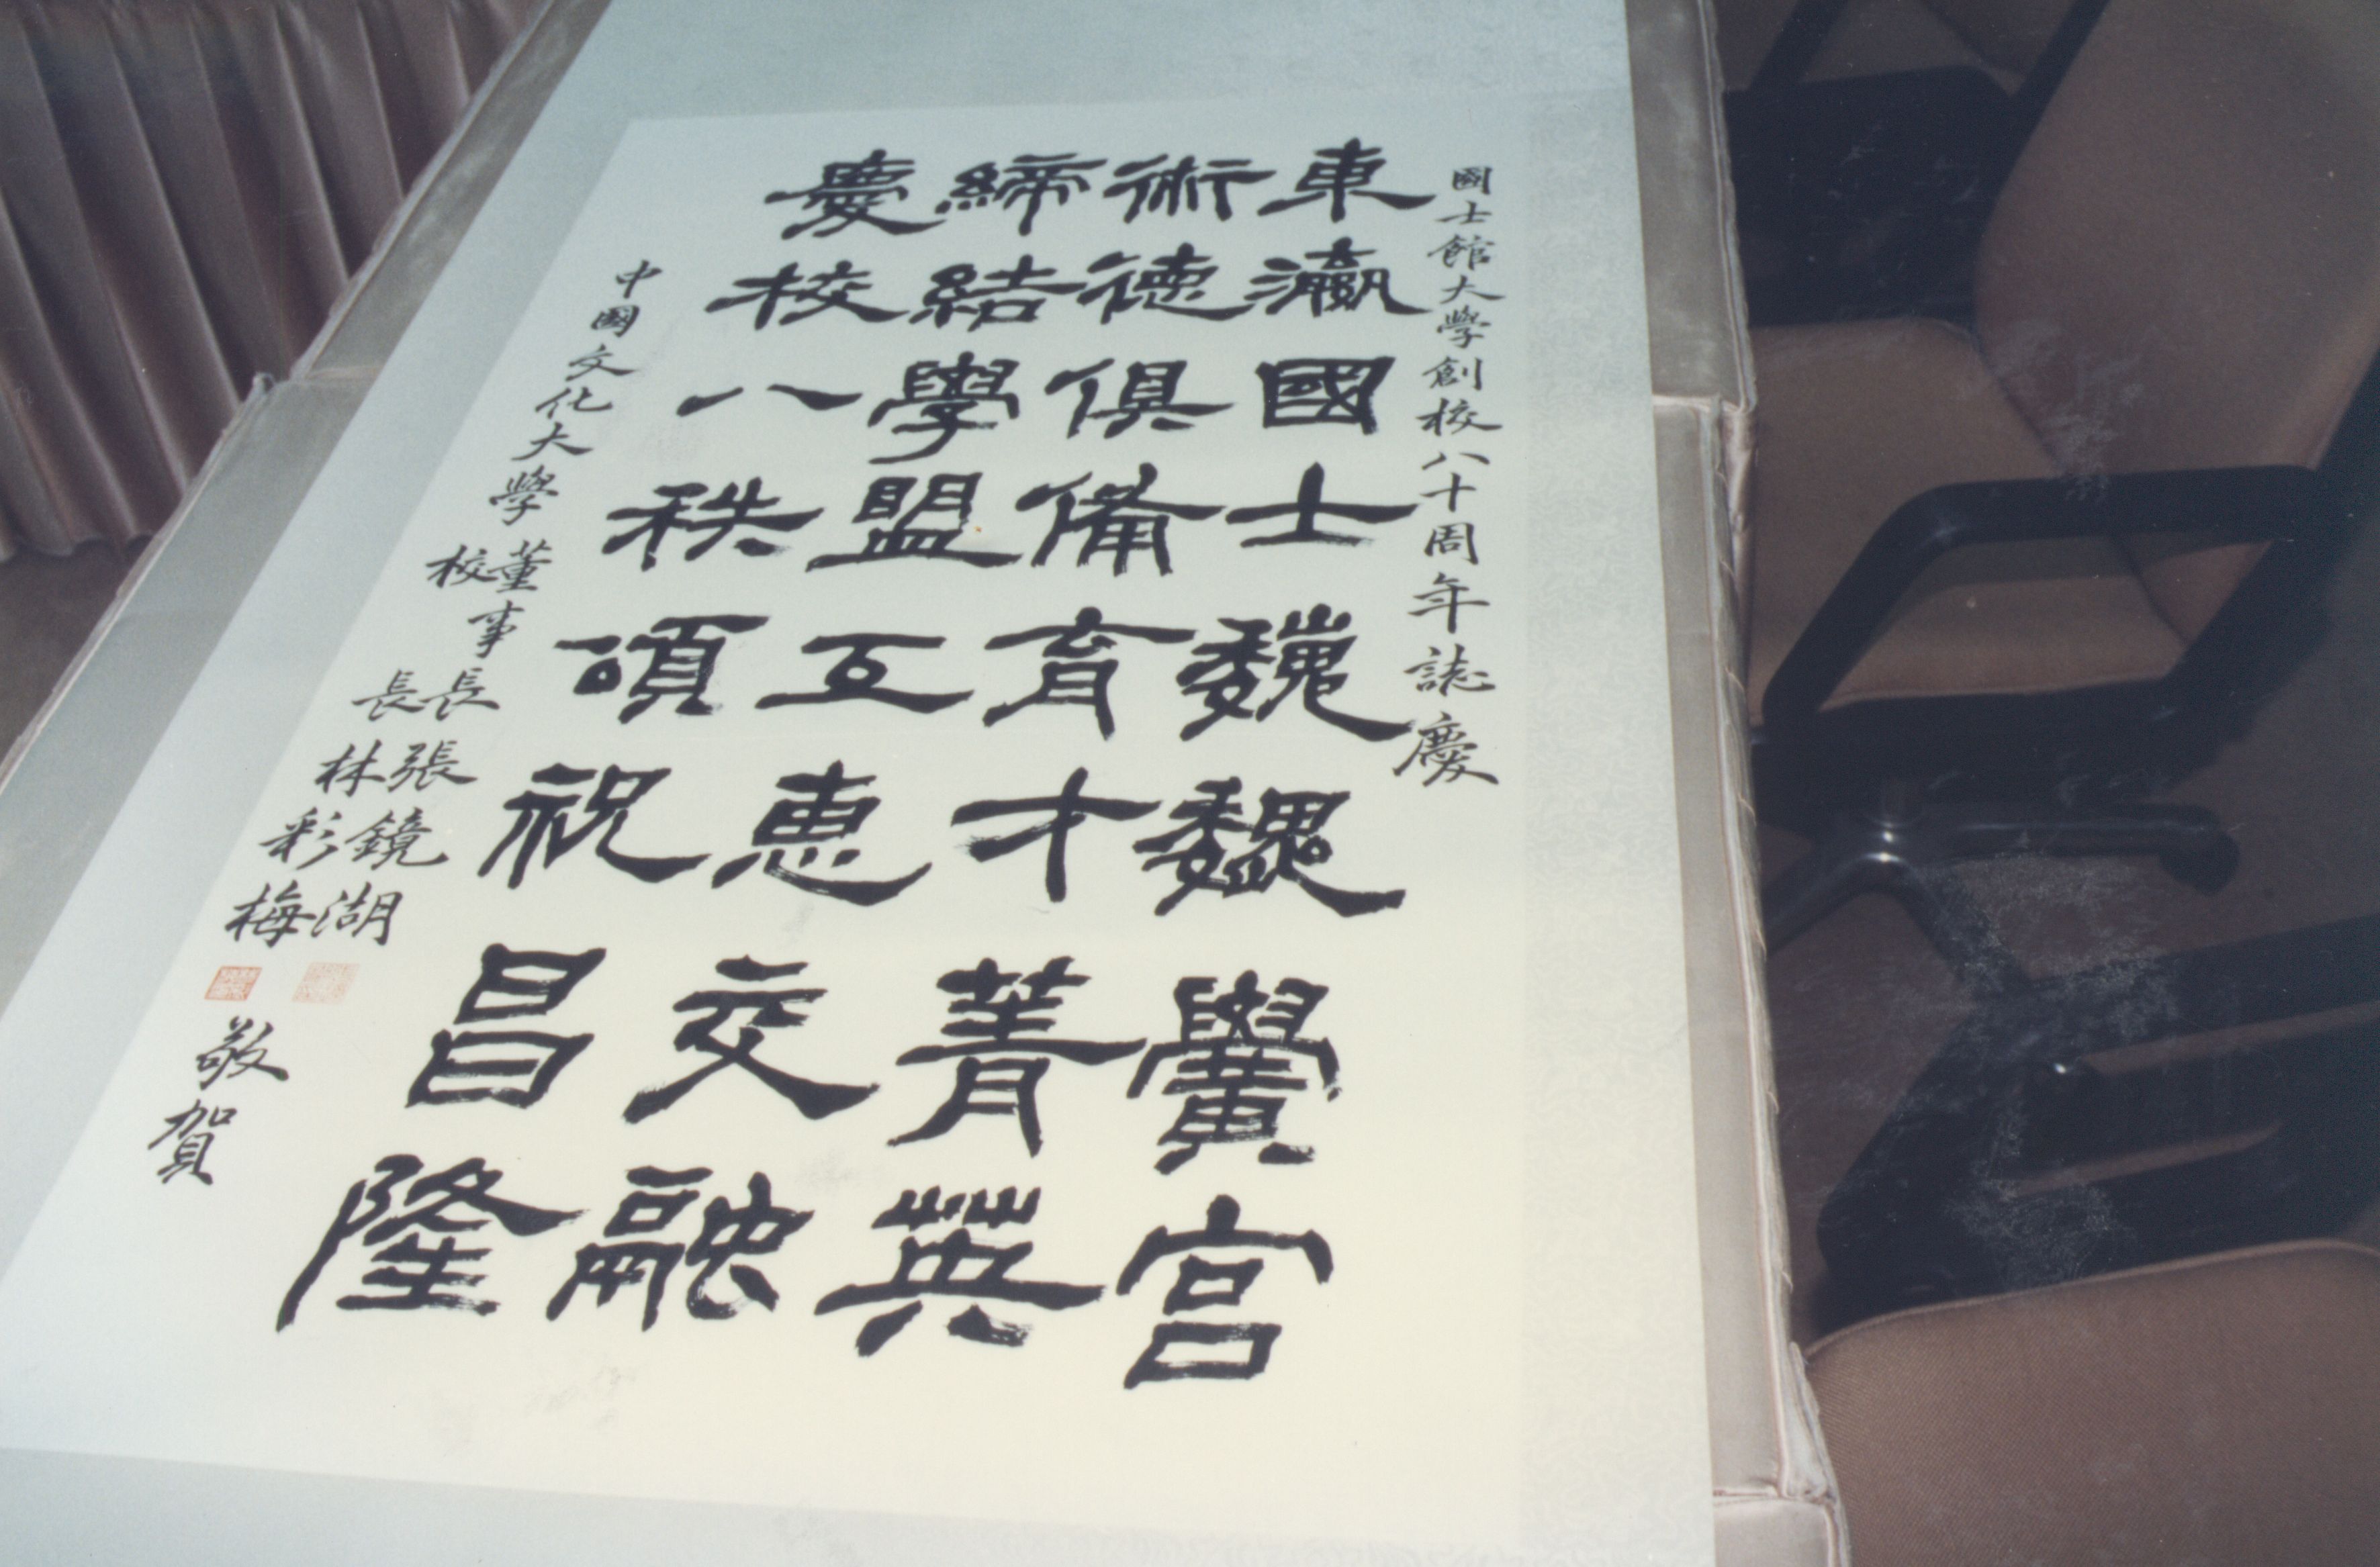 國士館大學創校八十周年誌慶
東瀛國士巍巍黌宮
術徳俱備育才菁英
締結學盟互惠交融
慶校八秩頌祝昌隆
中國文化大學
董事長張鏡湖
校長林彩梅
敬賀